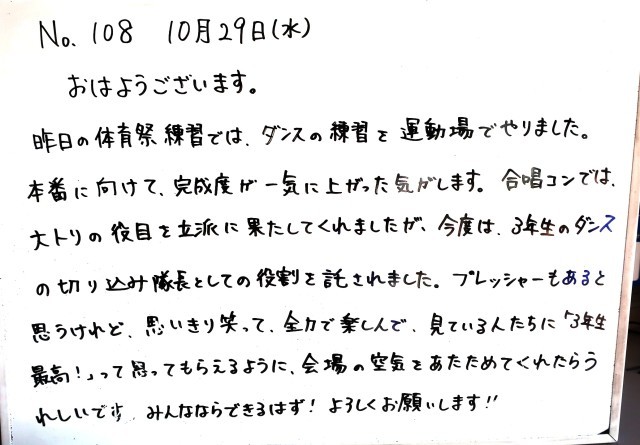 No. 108 10月29日(水)
おはようございます。
昨日の体育祭練習では、ダンスの練習を運動場でやりました。
本番に向けて、完成度が一気に上がった気がします。合唱コンでは、
大トリの役目を立派に果たしてくれましたが、今度は、3年生のダンス
の切り込み隊長としての役割を託されました。プレッシャーもあると
思うけれど、思いきり笑って、全力で楽しんで、見ている人たちに「3年生
最高!」って思ってもらえるように、会場の空気をあたためてくれたらう
れしいです。みんなならできるはず!よろしくお願いします!!